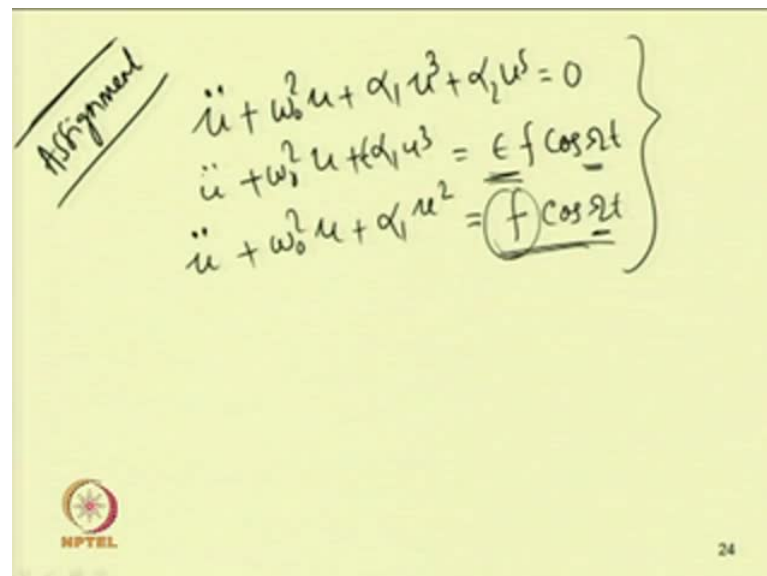 Assignment
ü + ω₀² u + α₁ u³ + α₂ u⁵ = 0
ü + ω₀² u + ϵα₁ u³ = ϵ f cos Ωt
ü + ω₀² u + α₁ u² = f cos Ωt
NPTEL
24